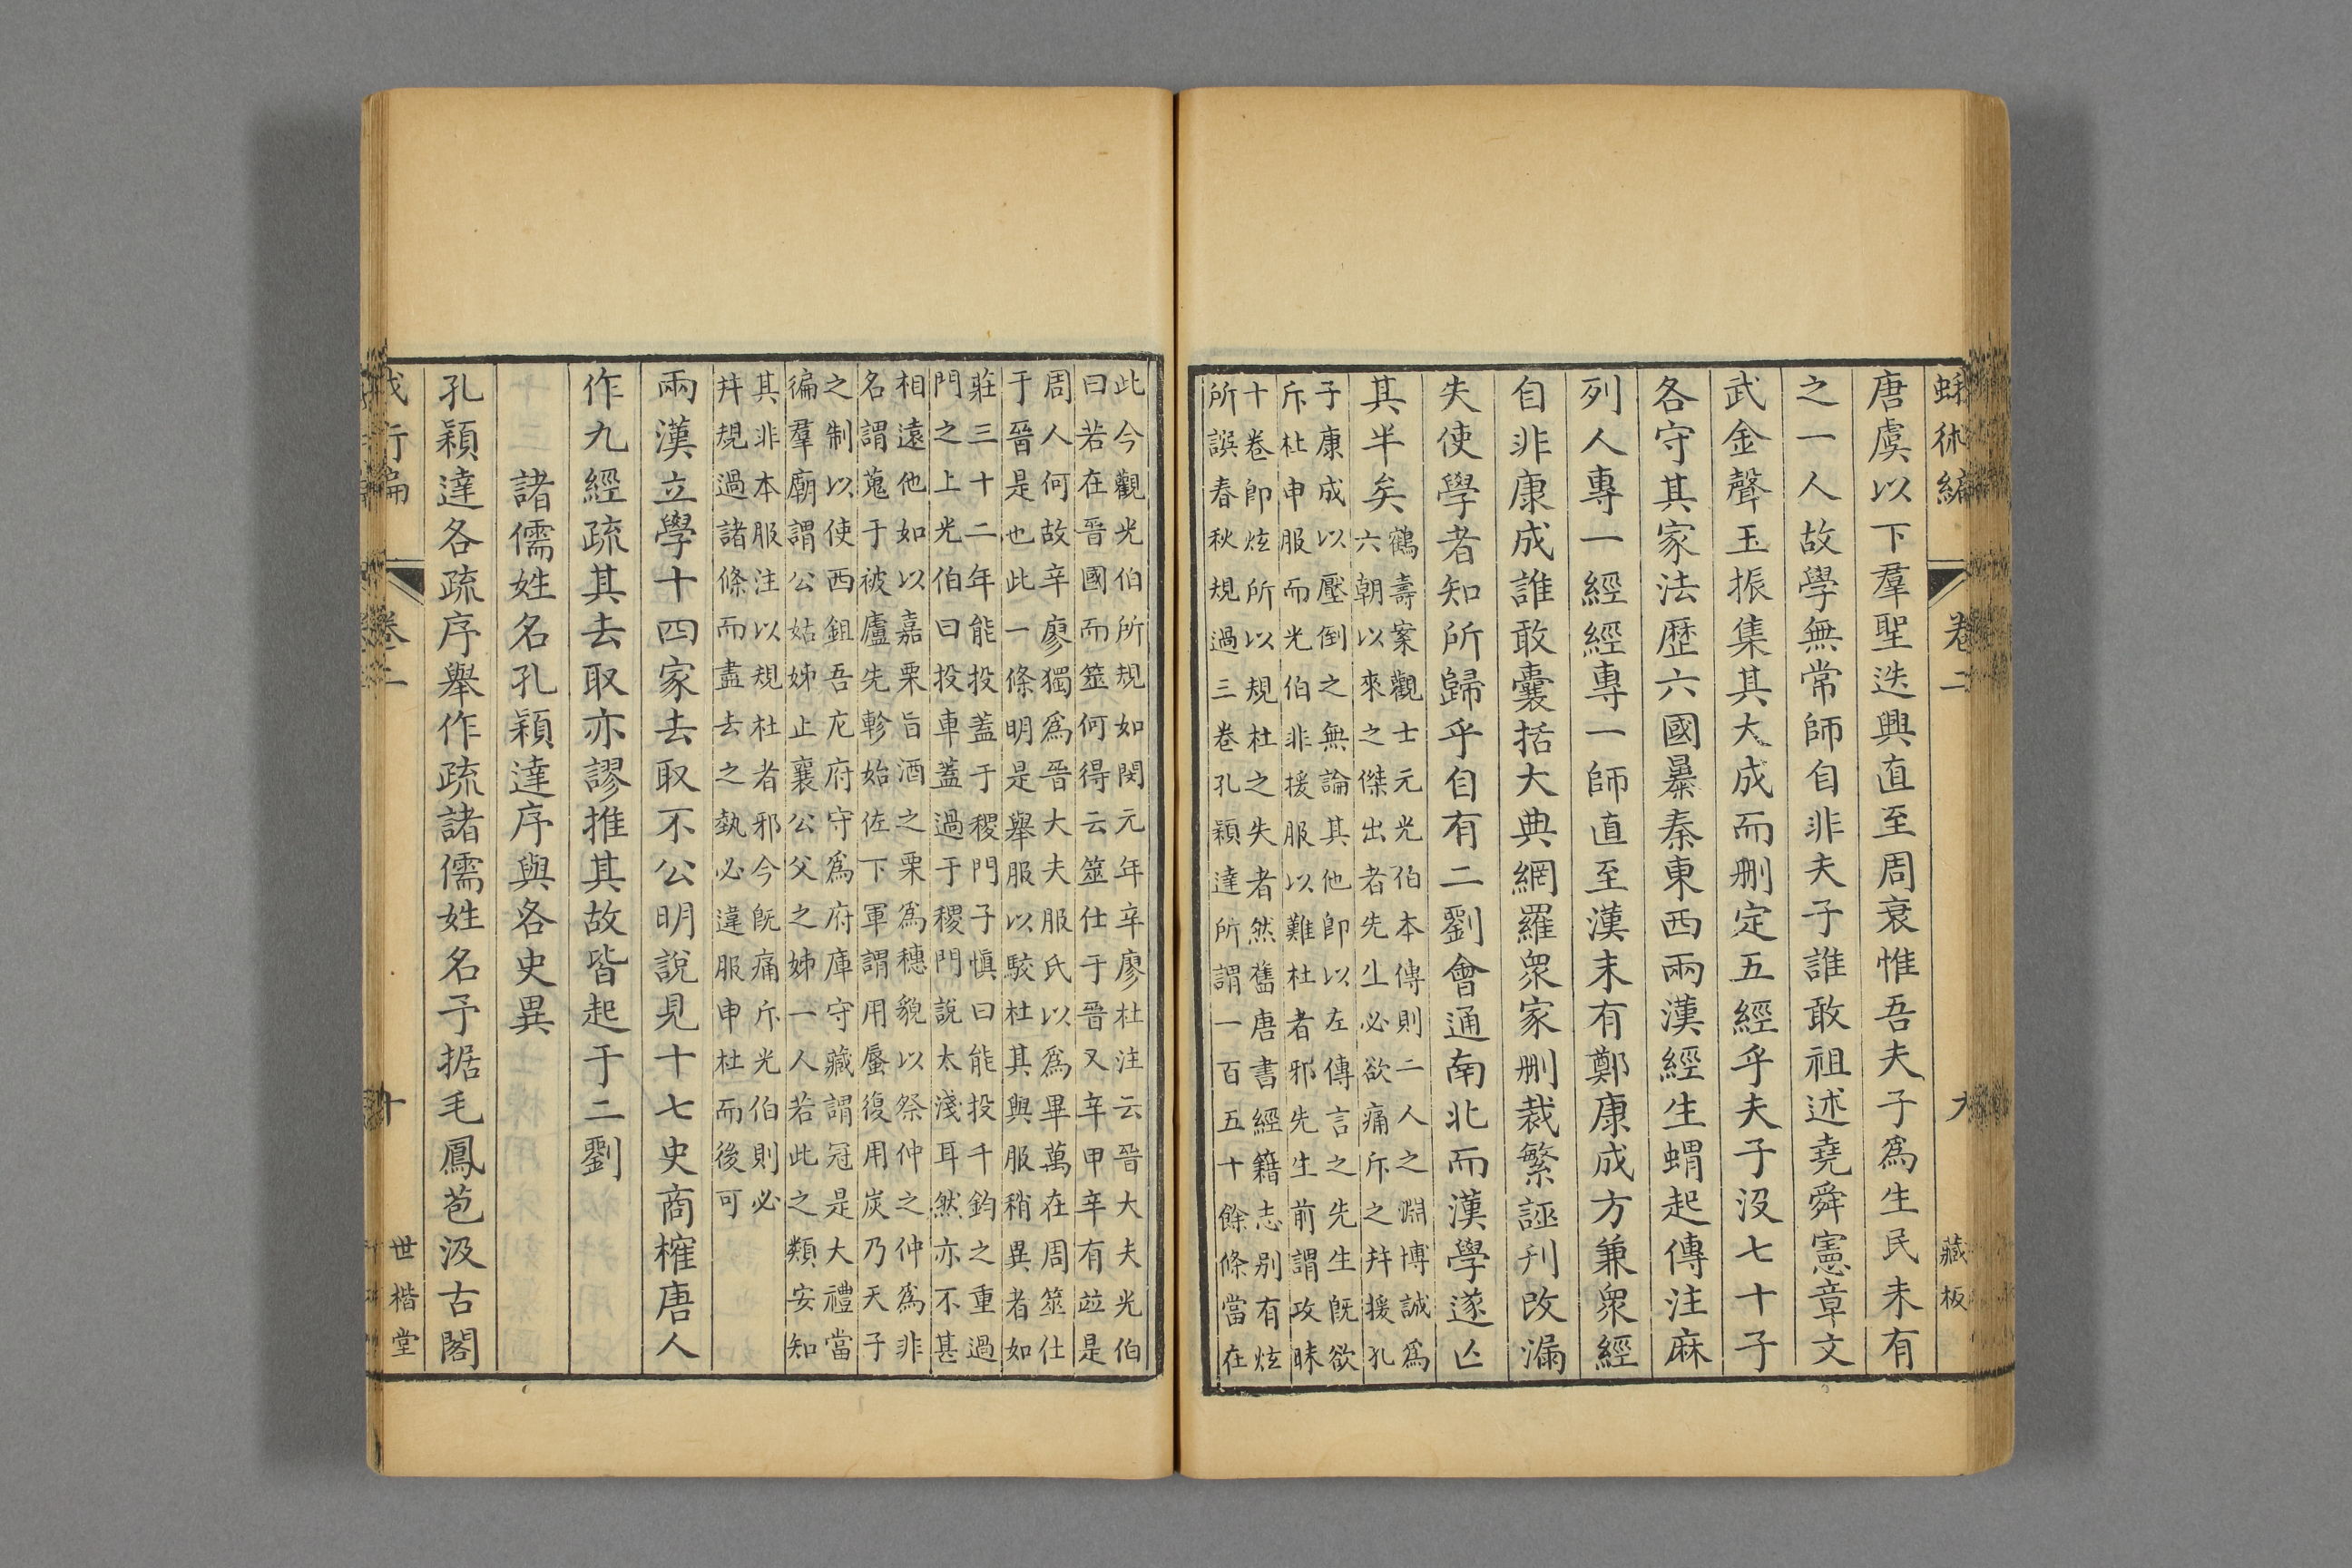 蛾術編 卷二 九 藏板
唐虞以下羣聖迭興直至周衰惟吾夫子爲生民未有
之一人故學無常師自非夫子誰敢祖述堯舜憲章文
武金聲玉振集其大成而刪定五經乎夫子沒七十子
各守其家法歷六國曓秦東西兩漢經生蝟起傳注麻
列人專一經經專一師直至漢末有鄭康成方兼衆經
自非康成誰敢囊括大典網羅衆家刪裁繁誣刊改漏
失使學者知所歸乎自有二劉會通南北而漢學遂亾
其半矣
鶴壽案觀士元光伯本傳則二人之淵博誠爲
六朝以來之傑出者先生必欲痛斥之幷援孔
子康成以壓倒之無論其他卽以左傳言之先生旣欲
斥杜申服而光伯非援服以難杜者邪先生前謂攻昧
十卷卽炫所以規杜之失者然舊唐書經籍志别有炫
所誤春秋規過三卷孔穎達所謂一百五十餘條當在
此今觀光伯所規如閔元年辛廖杜注云晉大夫光伯
曰若在晉國而筮何得云筮仕于晉又辛甲辛有竝是
周人何故辛廖獨爲晉大夫服氏以爲畢萬在周筮仕
于晉是也此一條明是舉服以駮杜其與服稍異者如
莊三十二年能投蓋于稷門子愼曰能投千鈞之重過
門之上光伯曰投車蓋過于稷門說太淺耳然亦不甚
相遠他如以嘉栗旨酒之栗爲穗貌以祭仲之仲爲非
名謂蒐于被廬先軫始佐下軍謂用蜃復用炭乃天子
之制以使西鉏吾庀府守爲府庫守藏謂冠是大禮當
徧羣廟謂公姑姊止襄公父之姊一人若此之類安知
其非本服注以規杜者邪今旣痛斥光伯則必
幷規過諸條而盡去之埶必違服申杜而後可
兩漢立學十四家去取不公明說見十七史商榷唐人
作九經疏其去取亦謬推其故皆起于二劉
諸儒姓名孔穎達序與各史異
孔穎達各疏序舉作疏諸儒姓名予据毛鳳苞汲古閣
卷二 十 世楷堂